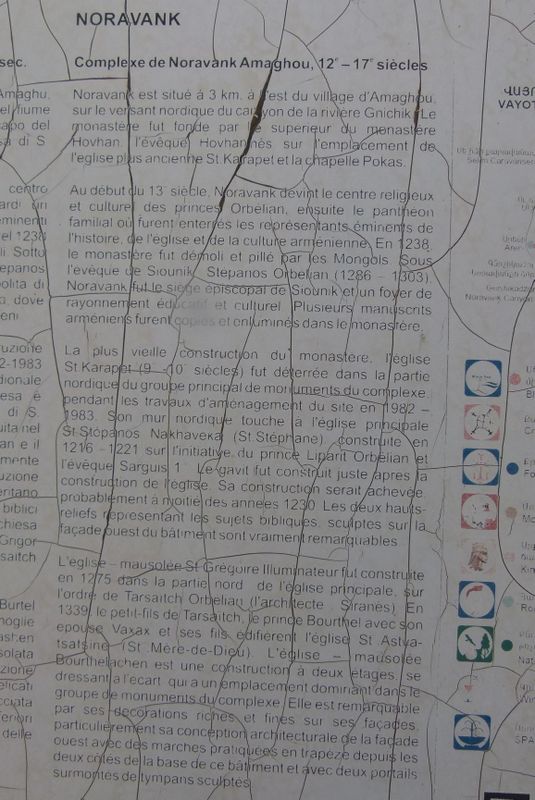 NORAVANK
Complexe de Noravank Amaghou, 12e – 17e siècles
Noravank est situé à 3 km, à l'est du village d'Amaghou,
sur le versant nordique du canyon de la rivière Gnichik. Le
monastère fut fondé par le superieur du monastère
Hovhan, l'évêque Hovhannès sur l'emplacement de
l'eglise plus ancienne St.Karapet et la chapelle Pokas.
Au début du 13e siècle, Noravank devint le centre religieux
et culturel des princes Orbelian, ensuite le panthéon
familial où furent enterrés les représentants éminents de
l'histoire, de l'église et de la culture arménienne. En 1238,
le monastère fut démoli et pillé par les Mongols. Sous
l'evêque de Siounik, Stépanos Orbelian (1286 – 1303),
Noravank fut le siège épiscopal de Siounik et un foyer de
rayonnement éducatif et culturel. Plusieurs manuscrits
arméniens furent copiés et enluminés dans le monastère.
La plus vieille construction du monastère, l'église
St Karapet (9e -10e siècles) fut déterrée dans la partie
nordique du groupe principal de monuments du complexe,
pendant les travaux d'aménagement du site en 1982 –
1983. Son mur nordique touche à l'église principale
St Stépanos Nakhaveka (St.Stéphane), construite en
1216 - 1221 sur l'initiative du prince Liparit Orbelian et
l'évêque Sarguis 1er. Le gavit fut construit juste après la
construction de l'église. Sa construction serait achevée
probablement à moitié des années 1230. Les deux hauts-
reliefs représentant les sujets bibliques, sculptés sur la
façade ouest du bâtiment sont vraiment remarquables.
L'eglise – mausolée St Grégoire Illuminateur fut construite
en 1275 dans la partie nord de l'église principale, sur
l'ordre de Tarsaitch Orbelian (l'architecte Siranès). En
1339, le petit-fils de Tarsaitch, le prince Bourthel avec son
epouse Vaxax et ses fils édifièrent l'église St Astua-
tsatsine (St .Mère-de-Dieu). L'église – mausolée
Bourthelachen est une construction à deux étages, se
dressant à l'ecart qui a un emplacement dominant dans le
groupe de monuments du complexe. Elle est remarquable
par ses décorations riches et fines sur ses façades,
particulièrement sa conception architecturale de la façade
ouest avec des marches pratiquées en trapèze depuis les
deux cotés de la base de ce bâtiment et avec deux portails
surmontés de tympans sculptés
sec.
Amaghu,
el fiume
capo del
sa di S
centro
eminenti
el 1238
Sotto
epanos
polita di
a, dove
ruzione
2-1983
dionale
esa è
di S.
uita nel
an e il
mente
uzione
eritano
biblici
chiesa
Grigor
rsaitch
Burtel
moglie
solata
azione
elicati
cciata
feriori
delle
ՎԱՅՈ
VAYOT
Selim Caravanser
Noravank Canyon
SPA